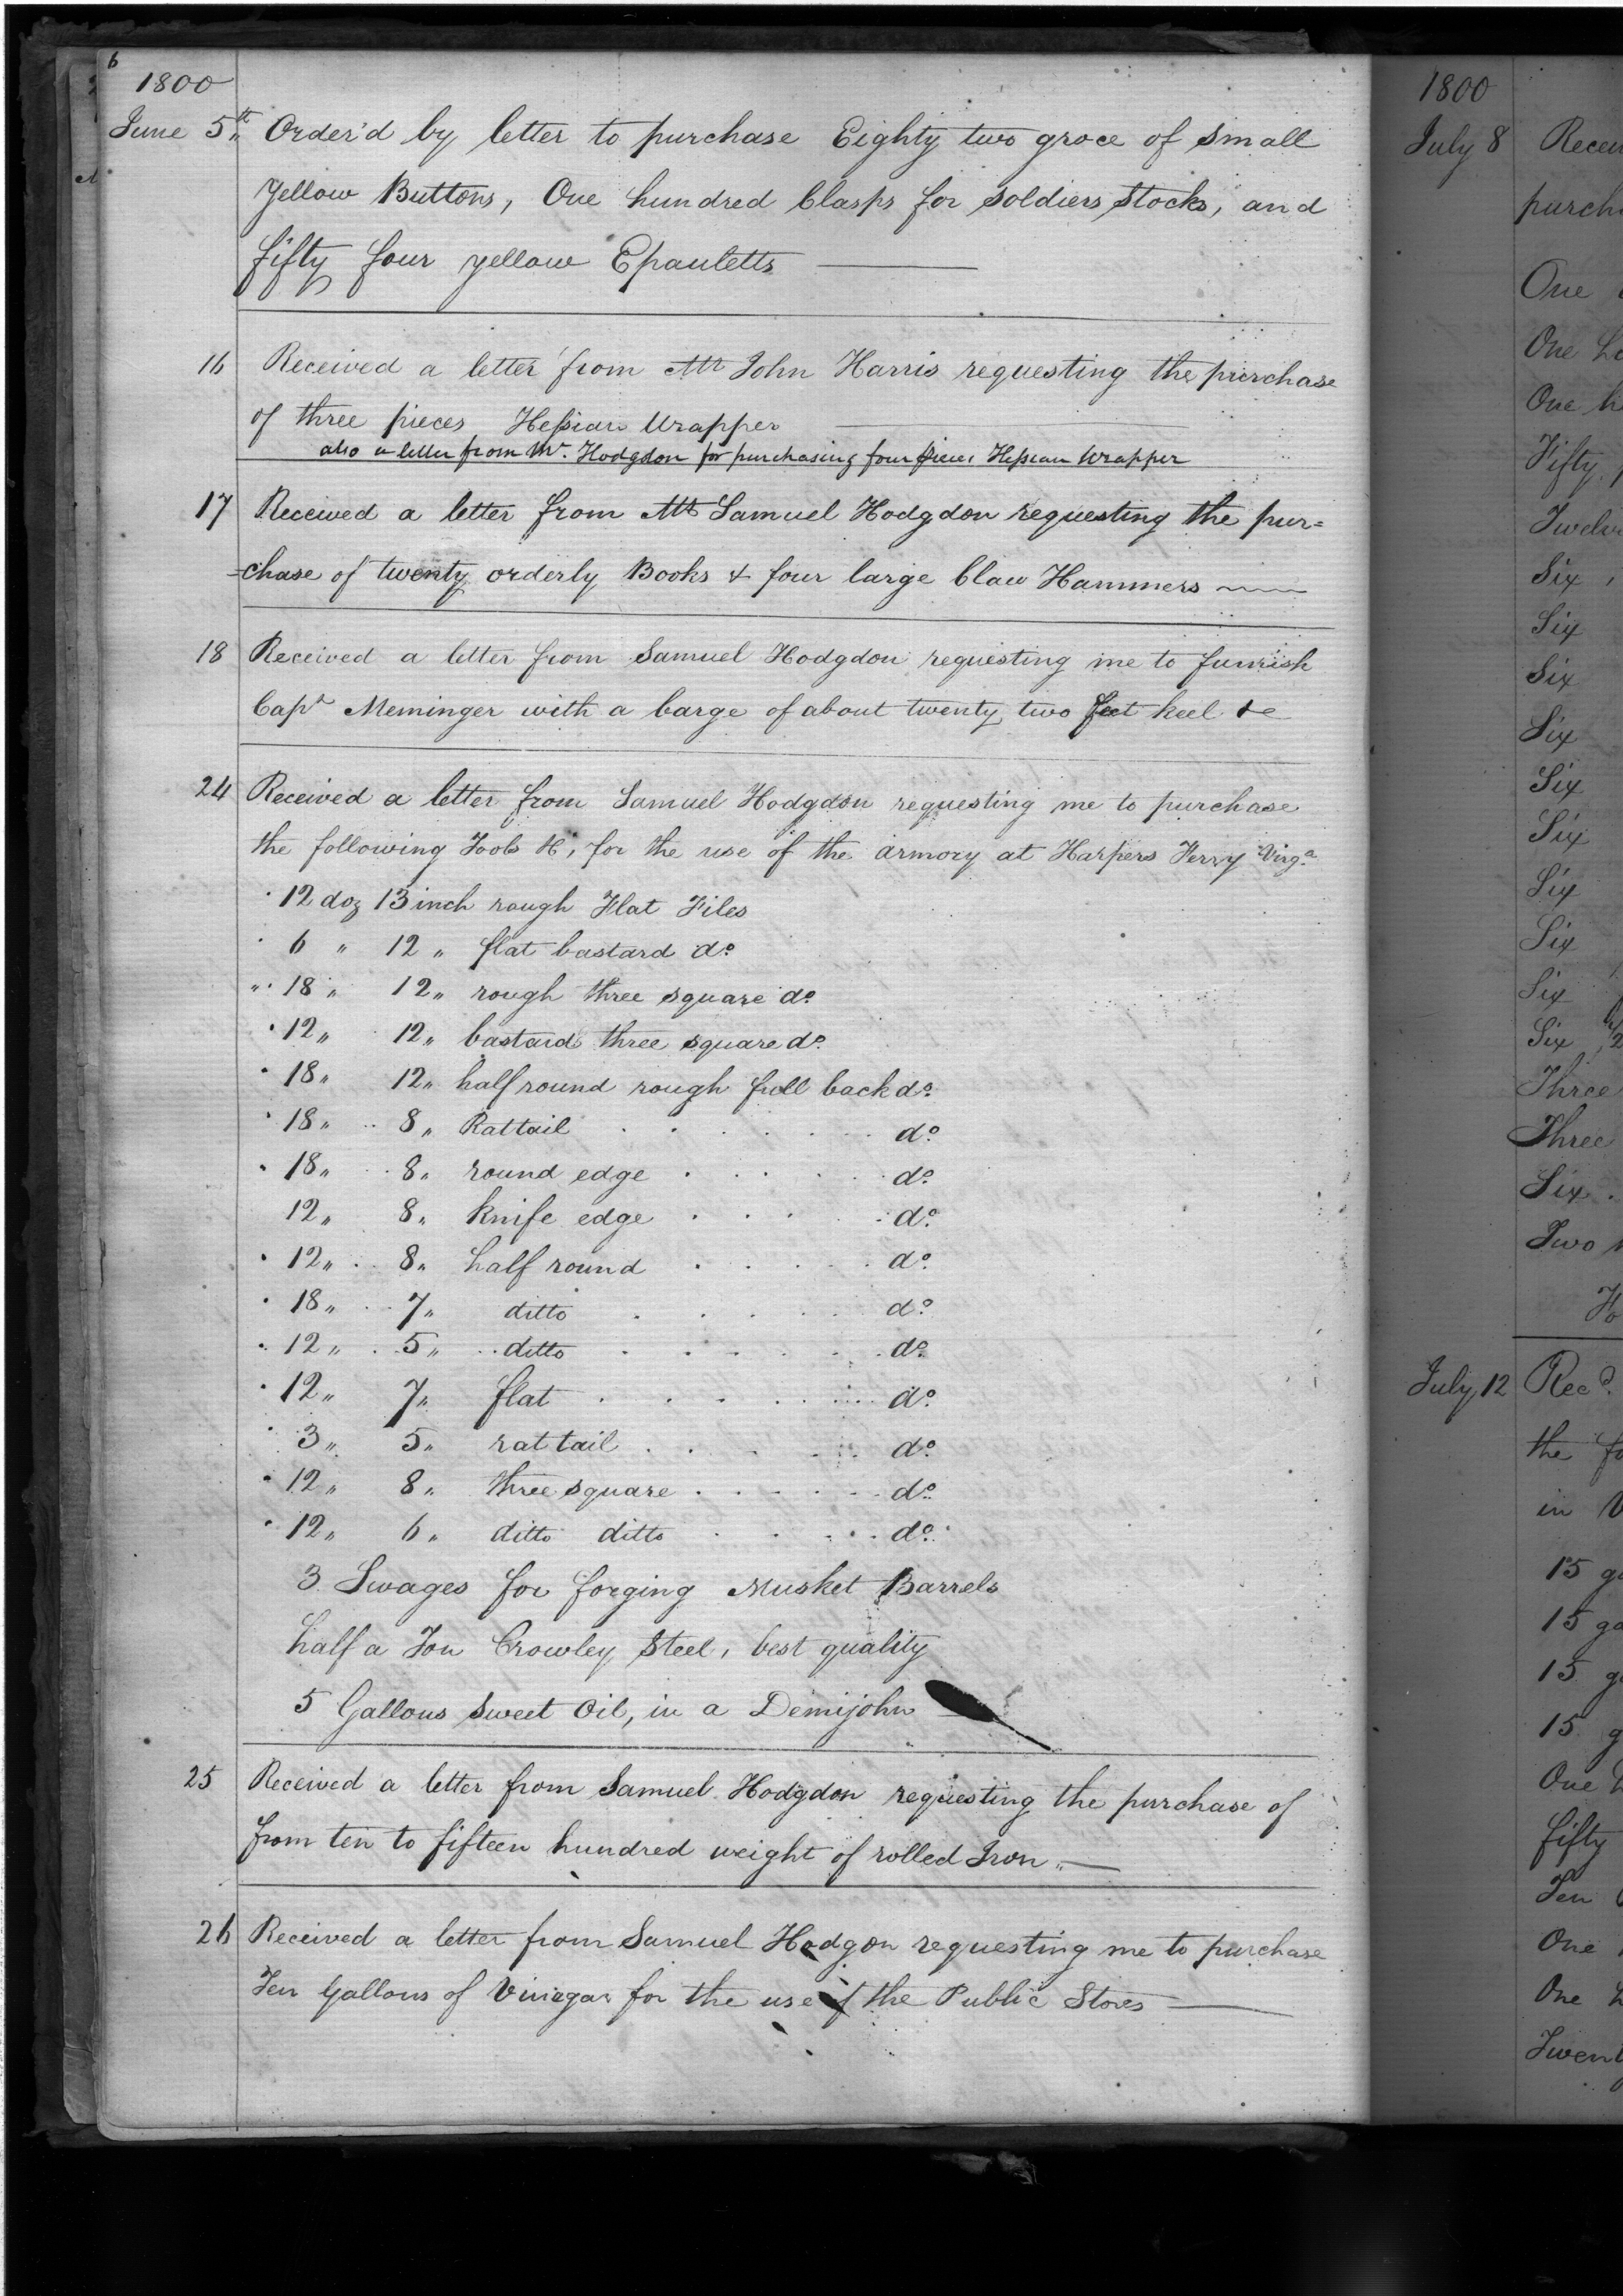 6
1800
June 5th Order'd by letter to purchase Eighty two groce of small
Yellow Buttons, One hundred Clasps for soldiers Stocks, and
fifty four yellow Epauletts
16 Received a letter from Mr John Harris requesting the purchase
of three pieces Hessian Wrapper
also a letter from Mr. Hodgdon for purchasing four pieces Hessian Wrapper
17 Received a letter from Mr Samuel Hodgdon requesting the pur=
=chase of twenty orderly Books & four large Claw Hammers
18 Received a letter from Samuel Hodgdon requesting me to furnish
Capt Meminger with a barge of about twenty two feet keel &c
24 Received a letter from Samuel Hodgdon requesting me to purchase
the following Tools &c, for the use of the armory at Harpers Ferry Virga
12 doz 13 inch rough Flat Files
6 " 12 " flat bastard do
18 " 12 " rough three square do
12 " 12 " bastard three square do
18 " 12 " half round rough full back do
18 " 8 " Rattail do
18 " 8 " round edge do
12 " 8 " Knife edge do
12 " 8 " half round do
18 " 7 " ditto do
12 " 5 " ditto do
12 " 7 " flat do
3 " 5 " rattail do
12 " 8 " three square do
12 " 6 " ditto ditto do
3 Swages for forging Musket Barrels
half a Ton Crowley Steel, best quality
5 Gallons Sweet Oil, in a Demijohn
25 Received a letter from Samuel Hodgdon requesting the purchase of
from ten to fifteen hundred weight of rolled Iron
26 Received a letter from Samuel Hodgon requesting me to purchase
Ten Gallons of Vinegar for the use of the Public Stores
1800
July 8
One
One
One
Fifty
Six
Six
Six
Six
Six
Six
Six
Six
Six
Six
Three
Three
Six
Two
July 12 Recd
the
in
15
15
15
15
One
fifty
Ten
One
One